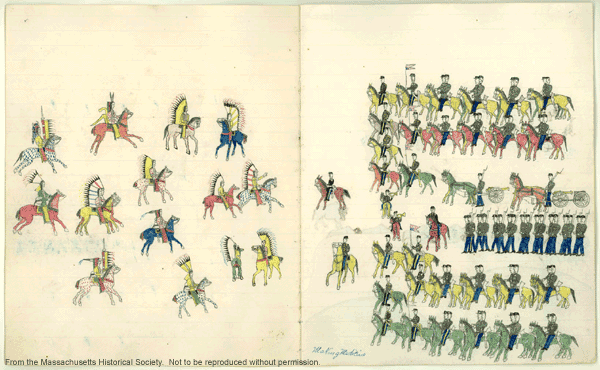 From the Massachusetts Historical Society. Not to be reproduced without permission.